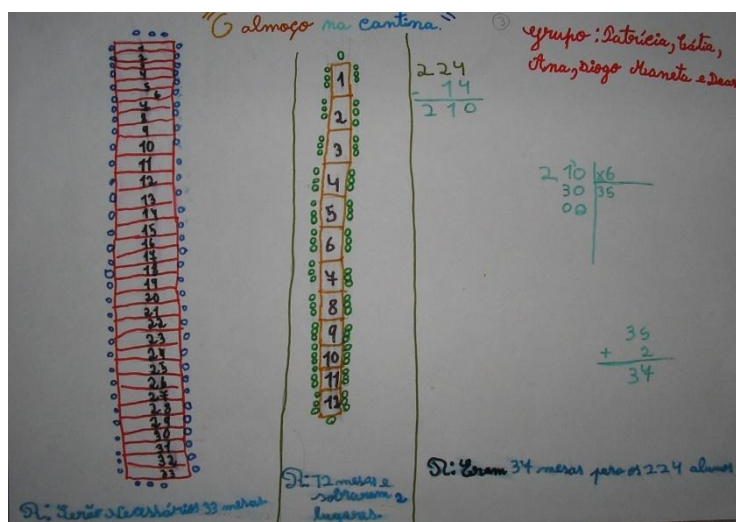 "O almoço na cantina."
③
grupo: Patrícia, Cátia,
Ana, Diogo Maneta e
1
2
3
4
5
6
7
8
9
10
11
12
13
14
15
16
17
18
19
20
21
22
23
24
25
26
27
28
29
30
31
32
33
R: Serão necessários 33 mesas.
1
2
3
4
5
6
7
8
9
10
11
12
R: 12 mesas e
sobraram 2
lugares
224
- 14
210
210 x6
30 35
00
35
+ 2
37
R: Eram 37 mesas para os 224 alunos